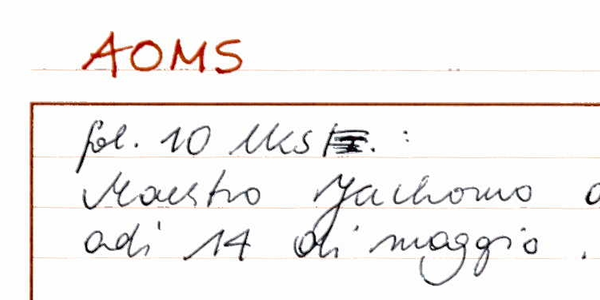 AOMS
fol. 10
Maestro Jachomo
adi 14 di maggio .